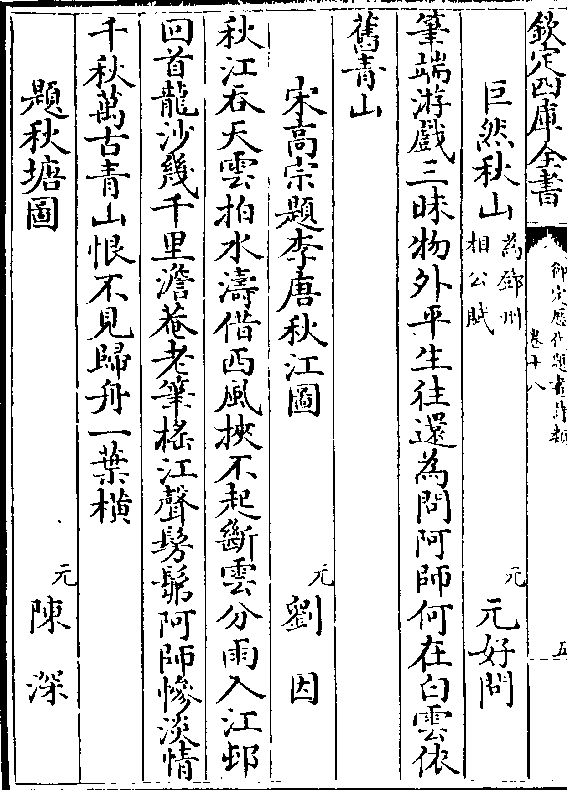 欽定四庫全書
御定歷代題畫詩類
卷十八
五
巨然秋山 為鄧州相公賦 元 元好問
筆端游戲三昧物外平生往還為問阿師何在白雲依
舊青山
宋高宗題李唐秋江圖 元 劉因
秋江吞天雲拍水濤借西風挾不起斷雲分雨入江邨
回首龍沙幾千里澹菴老筆榣江聲髣髴阿師慘淡情
千秋萬古青山恨不見歸舟一葉橫
題秋塘圖 元 陳深